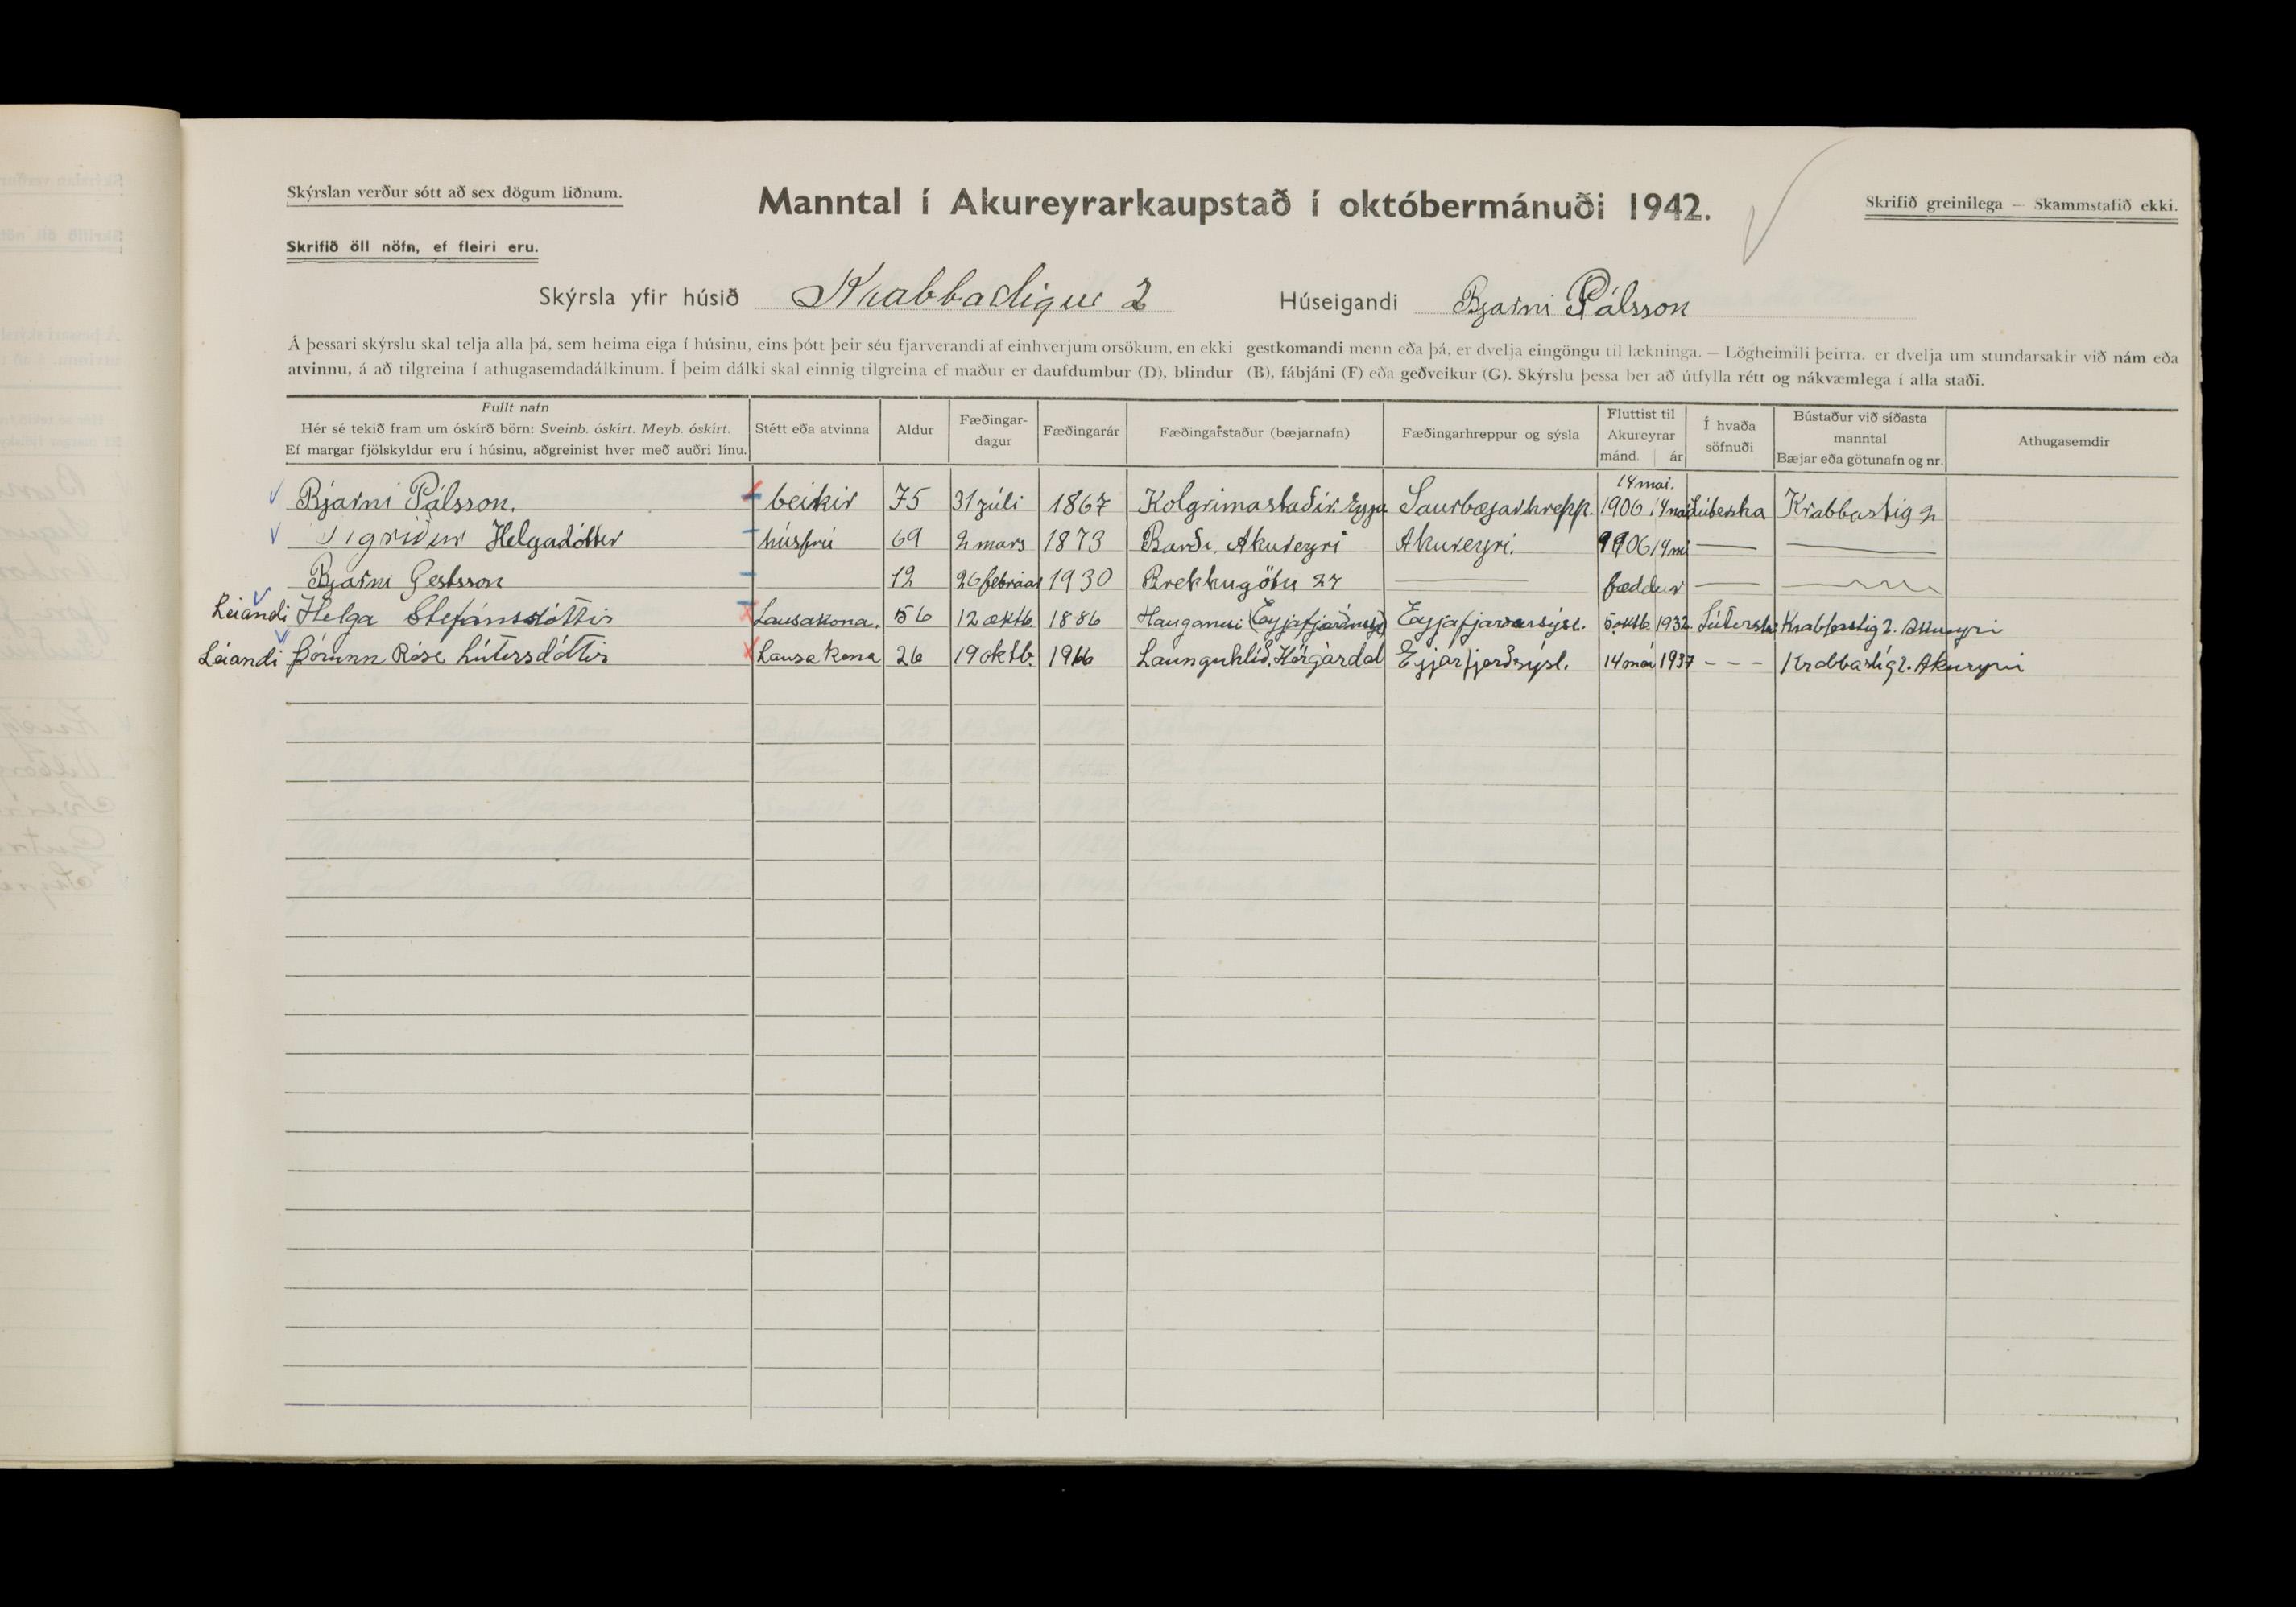 Skýrslan verður sótt að sex dögum liðnum.
Manntal í Akureyrarkaupstað í októbermánuði 1942.
Skrifið greinilega — Skammstafið ekki.
Skrifið öll nöfn, ef fleiri eru.
Skýrsla yfir húsið Krabbastigur 2 Húseigandi Bjarni Pálsson
Á þessari skýrslu skal telja alla þá, sem heima eiga í húsinu, eins þótt þeir séu fjarverandi af einhverjum orsökum, en ekki gestkomandi menn eða þá, er dvelja eingöngu til lækninga. — Lögheimili þeirra. er dvelja um stundarsakir við nám eða
atvinnu, á að tilgreina í athugasemdadálkinum. Í þeim dálki skal einnig tilgreina ef maður er daufdumbur (D), blindur (B), fábjáni (F) eða geðveikur (G). Skýrslu þessa ber að útfylla rétt og nákvæmlega í alla staði.
Fullt nafn
Hér sé tekið fram um óskírð börn: Sveinb. óskírt. Meyb. óskírt.
Ef margar fjölskyldur eru í húsinu, aðgreinist hver með auðri línu.
Stétt eða atvinna
Aldur
Fæðingar-
dagur
Fæðingarár
Fæðingarstaður (bæjarnafn)
Fæðingarhreppur og sýsla
Fluttist til
Akureyrar
mánd. ár
Í hvaða
söfnuði
Bústaður við síðasta
manntal
Bæjar eða götunafn og nr.
Athugasemdir
Bjarni Pálsson. beikir 75 31 júli 1867 Kolgrimastaðir. Eyja Saurbæjarhrepp. 14 mai. 1906 14 mai Lúterska Krabbastig 2
Sigriður Helgadóttir húsfrú 69 2 mars 1873 Barði. Akureyri Akureyri. 1906 14 mi
Bjarni Gestsson 12 26 febrúar 1930 Brekkugötu 27 fæddur
Leiandi Helga Stefánsdóttir Lausakona. 56 12 oktb. 1886 Hauganesi (Eyjafjarðarsýs) Eyjafjarðarsýsl. 5 oktb. 1932. Lúterska Krabbastig 2. Akureyri
Leiandi Þórunn Rósa Lútersdóttir Lausakona 26 19 oktb. 1916 Launguhlíð. Hörgárdal Eyjarfjarðsýsl. 14 mai 1937 - - - Krabbastíg 2. Akureyri